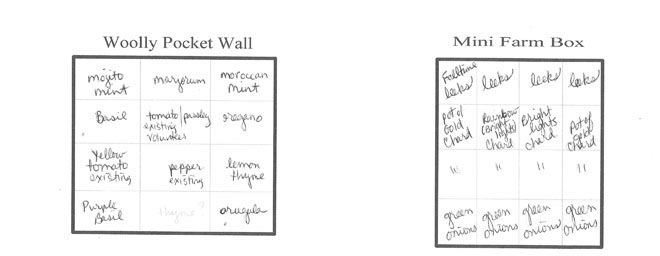 Woolly Pocket Wall
mojito
mint
marjorum
moroccan
mint
Basil
tomato/parsley
existing
volunteer
oregano
Yellow
tomato
existing
pepper
existing
lemon
thyme
Purple
Basil
thyme?
arugula
Mini Farm Box
Falltime
leeks
leeks
leeks
leeks
Pot of
Gold
Chard
Rainbow
(Bright
lights)
Chard
Bright
lights
chard
Pot of
Gold
Chard
"
"
"
"
green
onions
green
onions
green
onions
green
onions